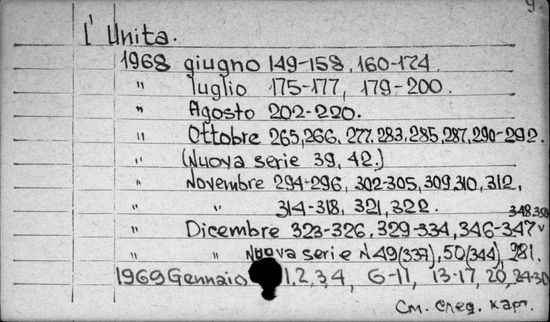 9.
l'Unita.
1968 giugno 149-158, 160-174.
" luglio 175-177, 179-200.
" Agosto 202-220.
" Ottobre 265, 266, 277, 283, 285, 287, 290-292.
" (Nuova serie 39, 42.)
" Novembre 294-296, 302-305, 309, 310, 312,
" 314-318, 321, 322.
348, 350
" Dicembre 323-326, 329-334, 346-347 v
" " Nuova serie N 49(337), 50(344), 981.
1969 Gennaio 1, 2, 3, 4, 6-11, 13-17, 20, 24-30
См. след. карт.